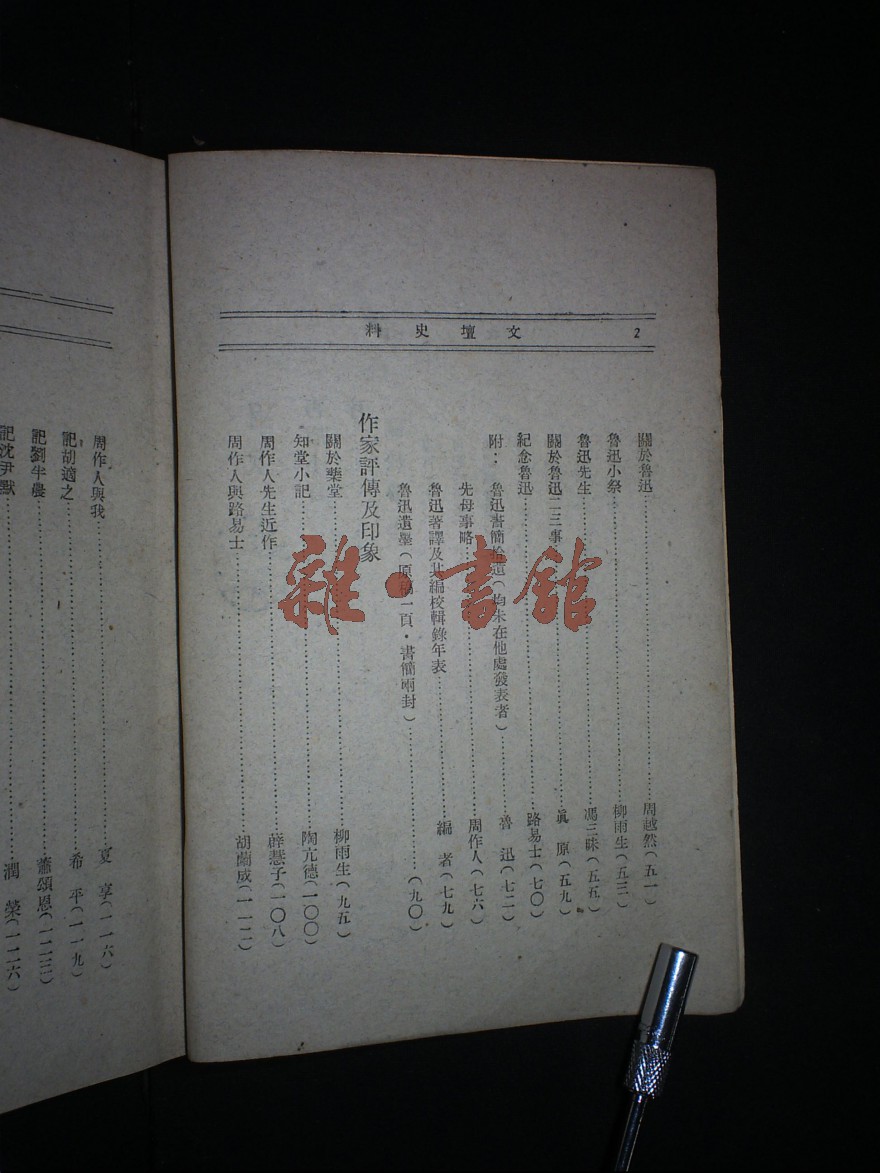 文壇史料 2
關於魯迅……周越然（五一）
魯迅小祭……柳雨生（五三）
魯迅先生……馮三昧（五五）
關於魯迅二三事……眞原（五九）
紀念魯迅……路易士（七〇）
附：魯迅書簡拾遺（均未在他處發表者）……魯迅（七二）
先母事略……周作人（七六）
魯迅著譯及其編校輯錄年表……編者（七九）
魯迅遺墨（原稿一頁・書簡兩封）……（九〇）
作家評傳及印象
關於藥堂……柳雨生（九五）
知堂小記……陶亢德（一〇〇）
周作人先生近作……薛慧子（一〇八）
周作人與路易士……胡蘭成（一一二）
周作人與我……夏享（一一六）
記胡適之……希平（一一九）
記劉半農……蕭頌恩（一二三）
記沈尹默……潤榮（一二六）
雜・書館